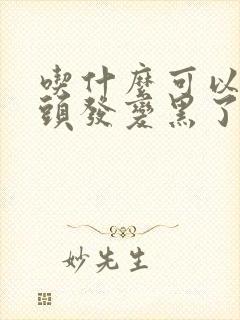 喫什麼可以
頭發變黑了
妙先生